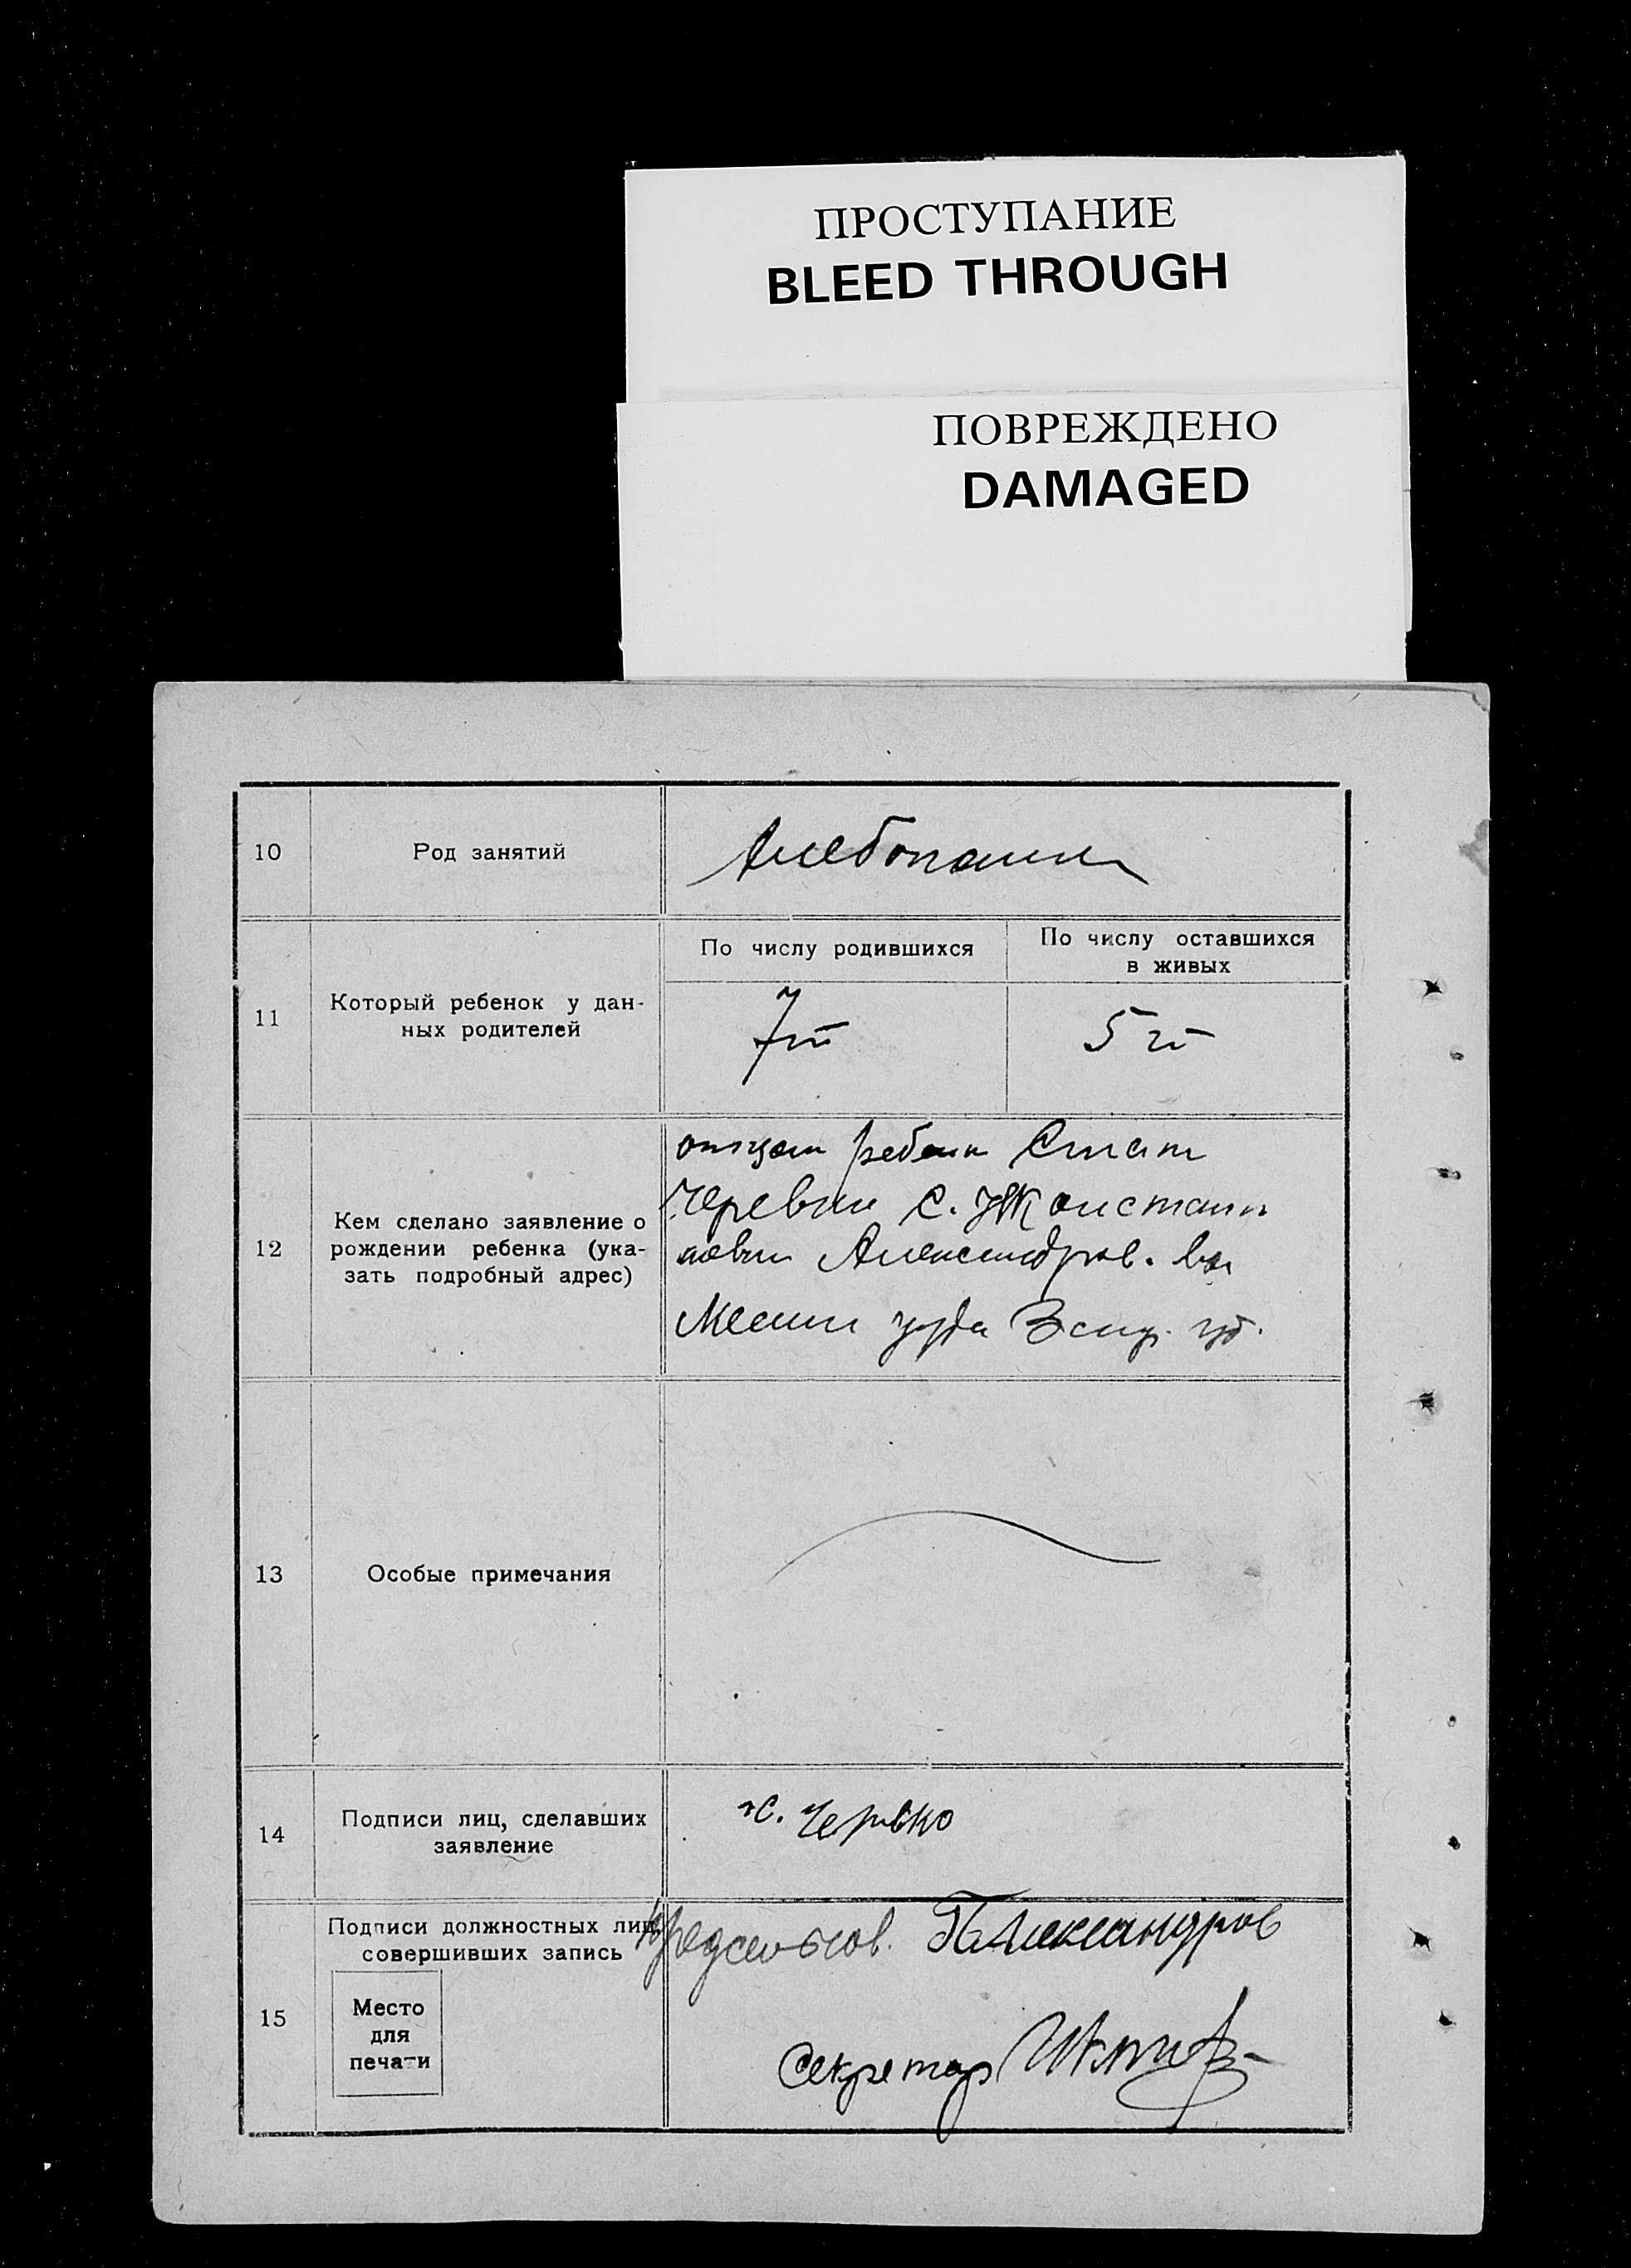 ПРОСТУПАНИЕ
BLEED THROUGH
ПОВРЕЖДЕНО
DAMAGED
10
Род занятий
Хлебопашец
11
Который ребенок у дан-
ных родителей
По числу родившихся
По числу оставшихся
в живых
7й
5й
12
Кем сделано заявление о
рождении ребенка (ука-
зать подробный адрес)
отцом
с. Констант
Александров.
13
Особые примечания
14
Подписи лиц, сделавших
заявление
15
Подписи должностных лиц,
совершивших запись
Место
для
печати
Предсельсов. Александров
Секретар